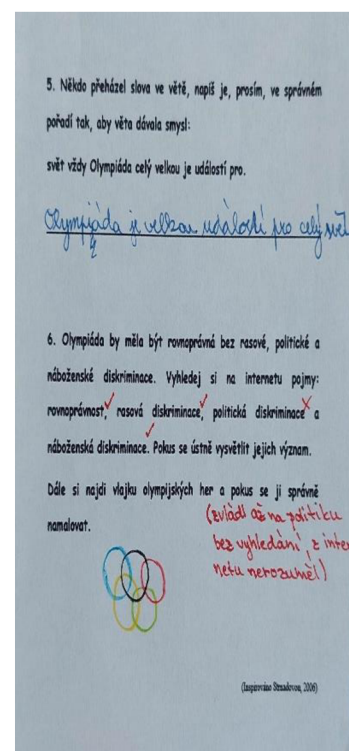 5. Někdo přeházel slova ve větě, napiš je, prosím, ve správném
pořadí tak, aby věta dávala smysl:
svět vždy Olympiáda celý velkou je událostí pro.
Olympiáda je velkou událostí pro celý svět
6. Olympiáda by měla být rovnoprávná bez rasové, politické a
náboženské diskriminace. Vyhledej si na internetu pojmy:
rovnoprávnost, rasová diskriminace, politická diskriminace a
náboženská diskriminace. Pokus se ústně vysvětlit jejich význam.
Dále si najdi vlajku olympijských her a pokus se ji správně
namalovat.
(zvládl až na politiku
bez vyhledání, z inter
netu nerozuměl)
(Inspirováno Strnadovou, 2006)